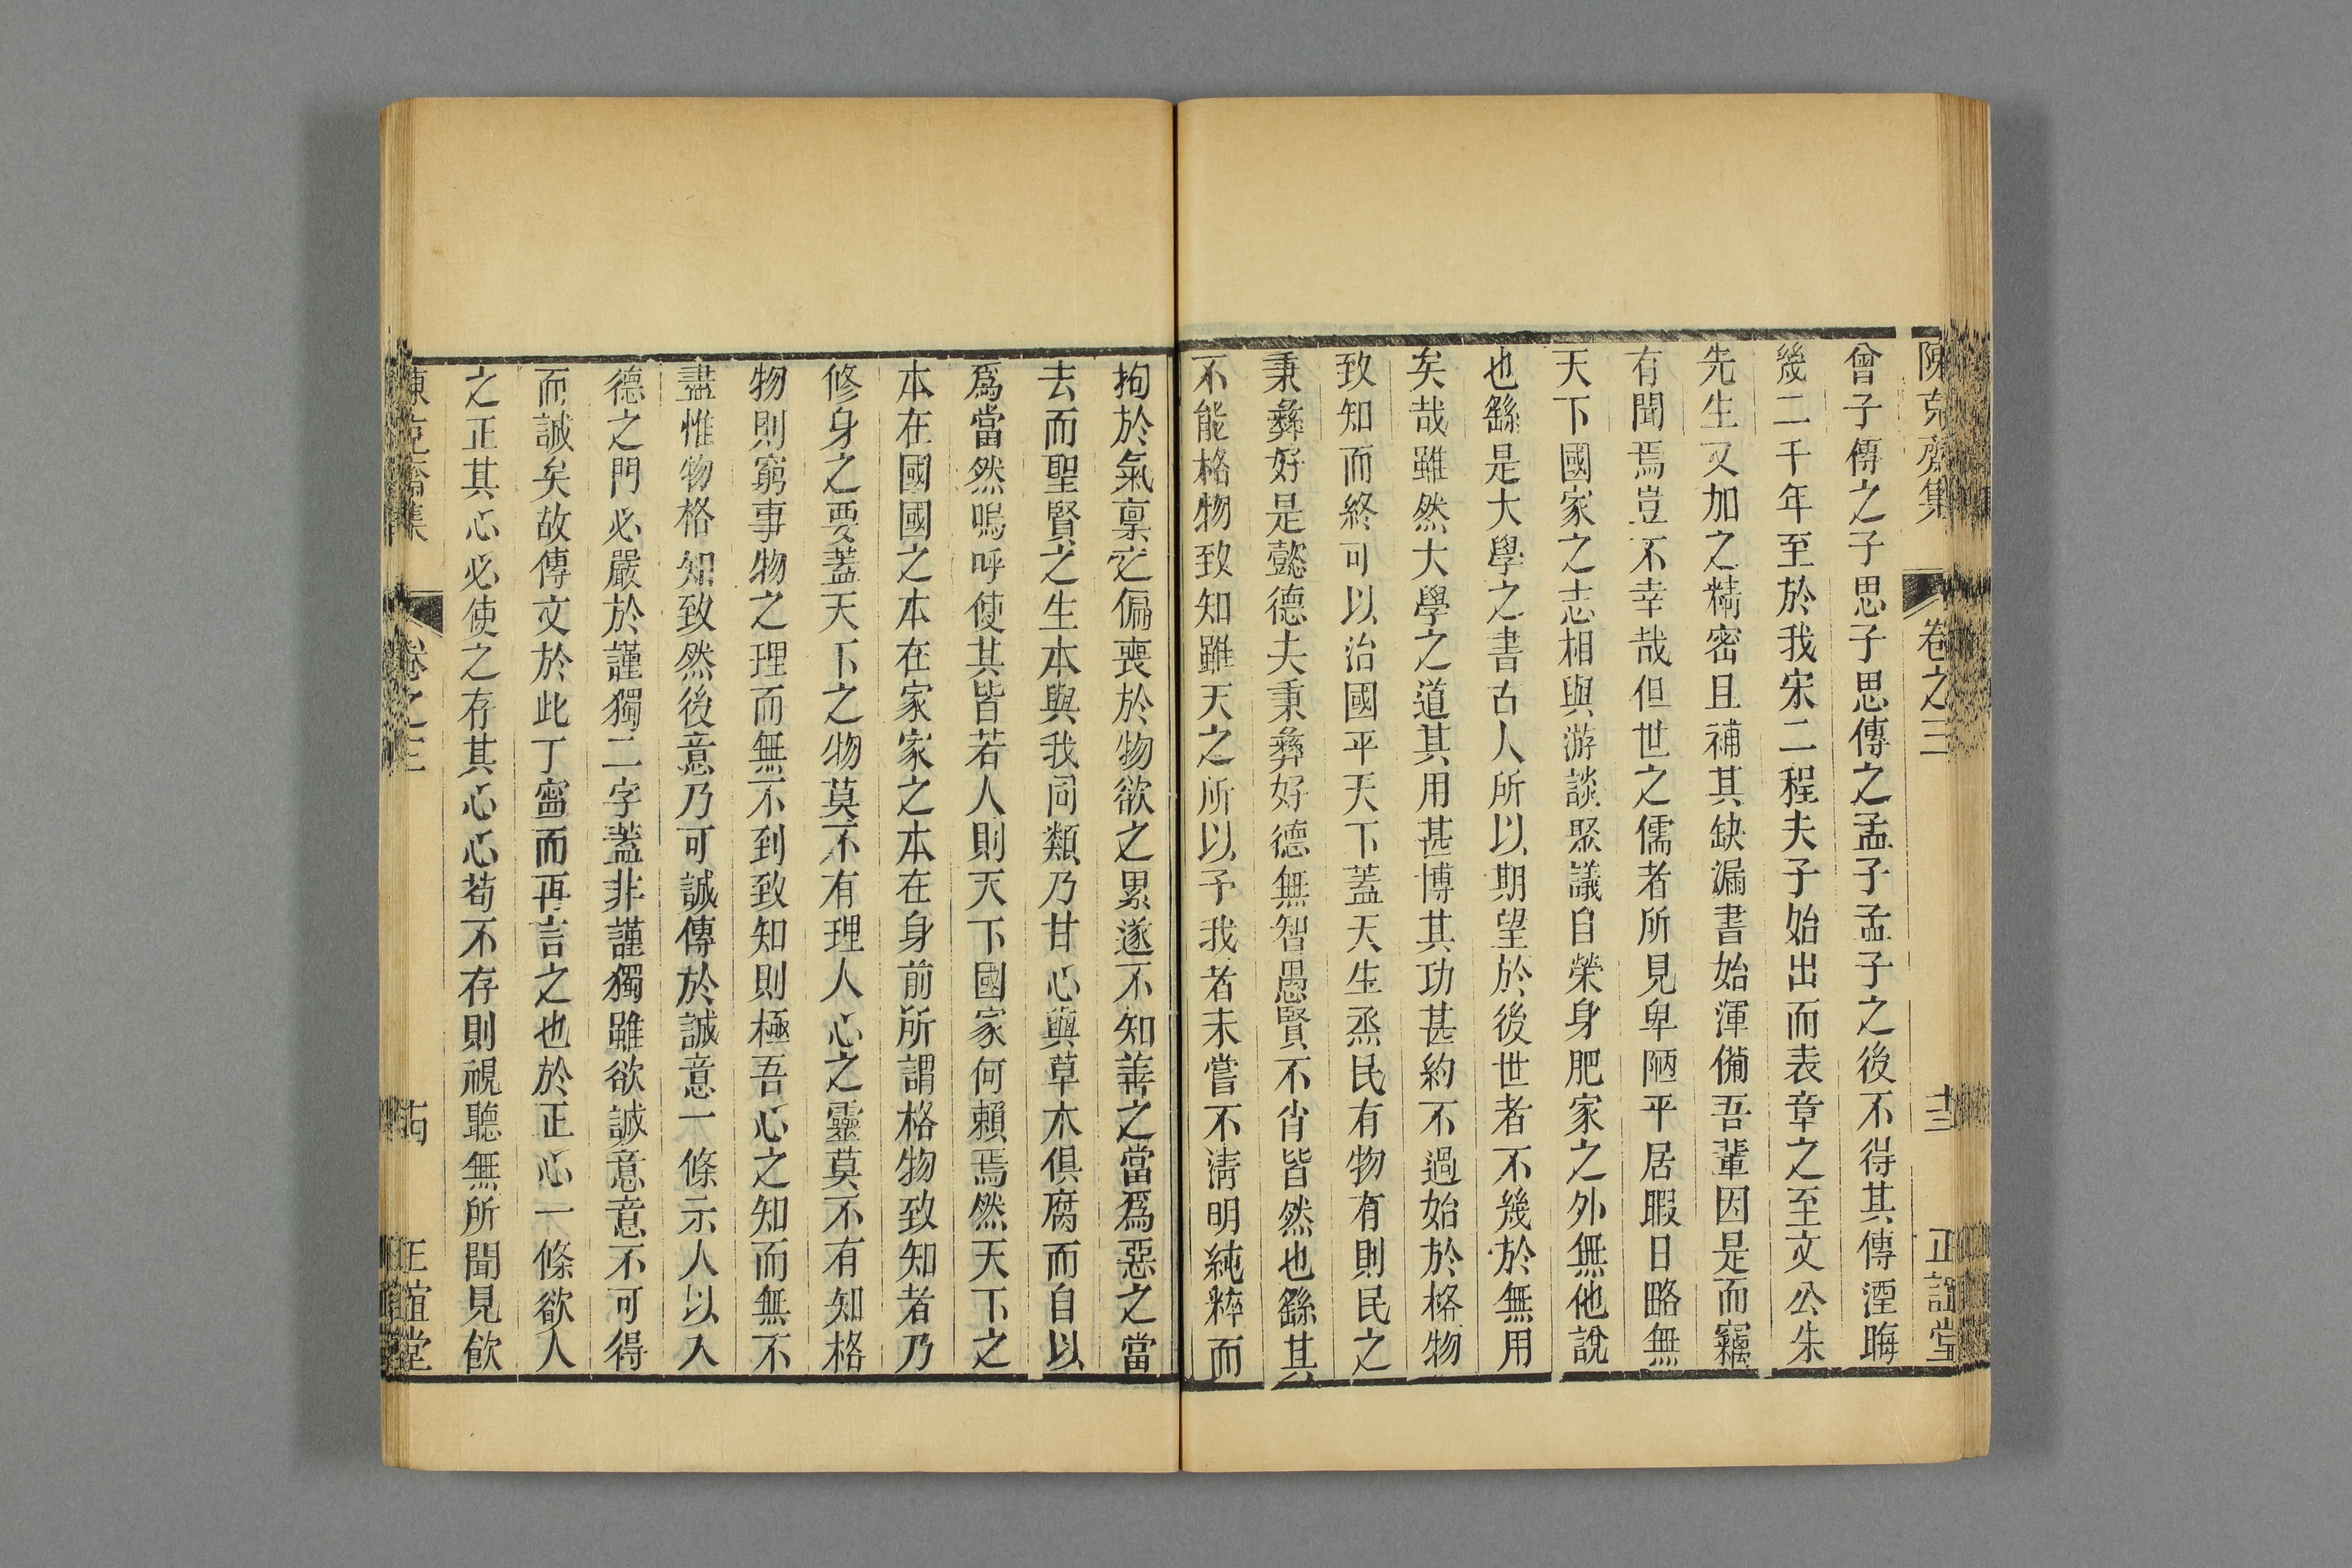 陳克齋集 卷之三 十三 正誼堂
曾子傳之子思子思傳之孟子孟子之後不得其傳湮晦
幾二千年至於我宋二程夫子始出而表章之至文公朱
先生又加之精密且補其缺漏書始渾備吾輩因是而竊
有聞焉豈不幸哉但世之儒者所見卑陋平居暇日略無
天下國家之志相與游談聚議自榮身肥家之外無他說
也繇是大學之書古人所以期望於後世者不幾於無用
矣哉雖然大學之道其用甚博其功甚約不過始於格物
致知而終可以治國平天下蓋天生烝民有物有則民之
秉彝好是懿德夫秉彝好德無智愚賢不肖皆然也繇其
不能格物致知雖天之所以予我者未嘗不清明純粹而
拘於氣稟之偏喪於物欲之累遂不知善之當爲惡之當
去而聖賢之生本與我同類乃甘心與草木俱腐而自以
爲當然嗚呼使其皆若人則天下國家何賴焉然天下之
本在國國之本在家家之本在身前所謂格物致知者乃
修身之要蓋天下之物莫不有理人心之靈莫不有知格
物則窮事物之理而無不到致知則極吾心之知而無不
盡惟物格知致然後意乃可誠傳於誠意一條示人以入
德之門必嚴於謹獨二字蓋非謹獨雖欲誠意意不可得
而誠矣故傳文於此丁寧而再言之也於正心一條欲人
之正其心必使之存其心心苟不存則視聽無所聞見飲
陳克齋集 卷之三 十四 正誼堂